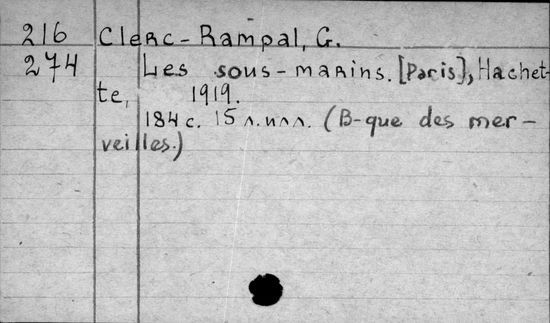 216 Clerc-Rampal, G.
274 Les sous-marins. [Paris], Hachet-
te, 1919.
184 с. 15 л. илл. (B-que des mer-
veilles.)